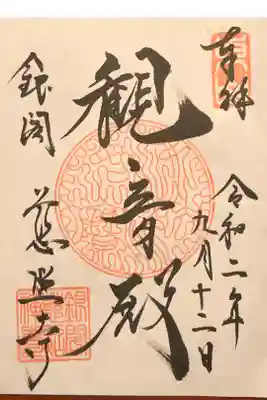 奉拝
令和二年
九月十二日
観音殿
銀閣
慈照寺